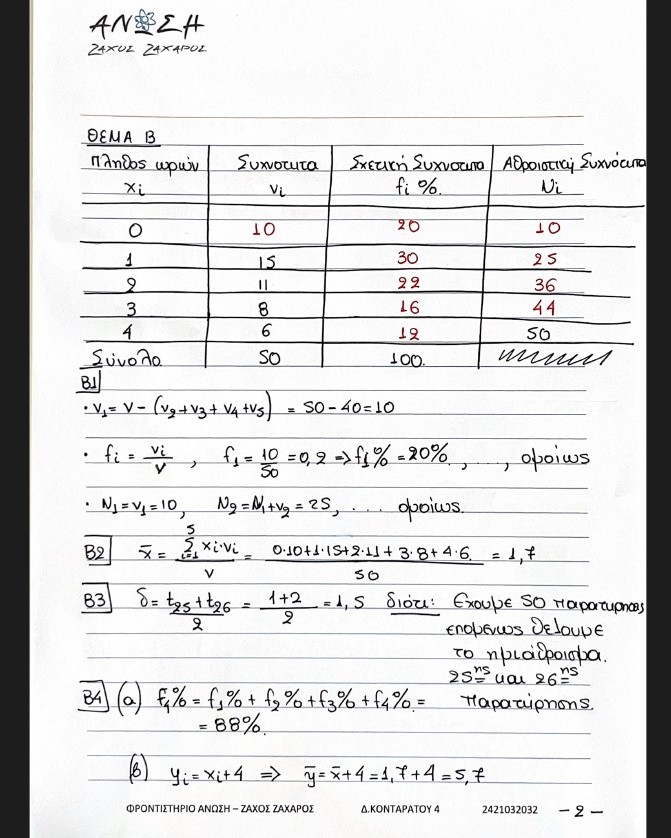 ΑΝΩΣΗ
ΖΑΧΟΣ ΖΑΧΑΡΟΣ
ΘΕΜΑ Β
Πλήθος ωρών Συχνότητα Σχετική Συχνότητα Αθροιστική Συχνότητα
xi νi fi %. Ni
0 10 20 10
1 15 30 25
2 11 22 36
3 8 16 44
4 6 12 50
Σύνολο 50 100.
B1
· ν₁= ν – (ν₂+ν₃+ν₄+ν₅) = 50 – 40 = 10
· fi = νi/ν , f₁ = 10/50 = 0,2 ⇒ f₁% = 20% , ...., ομοίως
· N₁=ν₁=10, N₂=N₁+ν₂=25, ... ομοίως.
B2 x̄ = Σ⁵ᵢ₌₁ xi·νi/ν = 0·10+1·15+2·11+3·8+4·6/50 = 1,7
B3 δ = t₂₅+t₂₆/2 = 1+2/2 = 1,5 διότι: Έχουμε 50 παρατηρήσεις
επομένως θέλουμε
το ημιάθροισμα.
25ης και 26ης
B4 (α) F₄% = f₁% + f₂% + f₃% + f₄% = παρατήρησης.
= 88%.
(β) yi = xi+4 ⇒ ȳ = x̄+4 = 1,7+4 = 5,7
ΦΡΟΝΤΙΣΤΗΡΙΟ ΑΝΩΣΗ – ΖΑΧΟΣ ΖΑΧΑΡΟΣ Δ.ΚΟΝΤΑΡΑΤΟΥ 4 2421032032 – 2 –